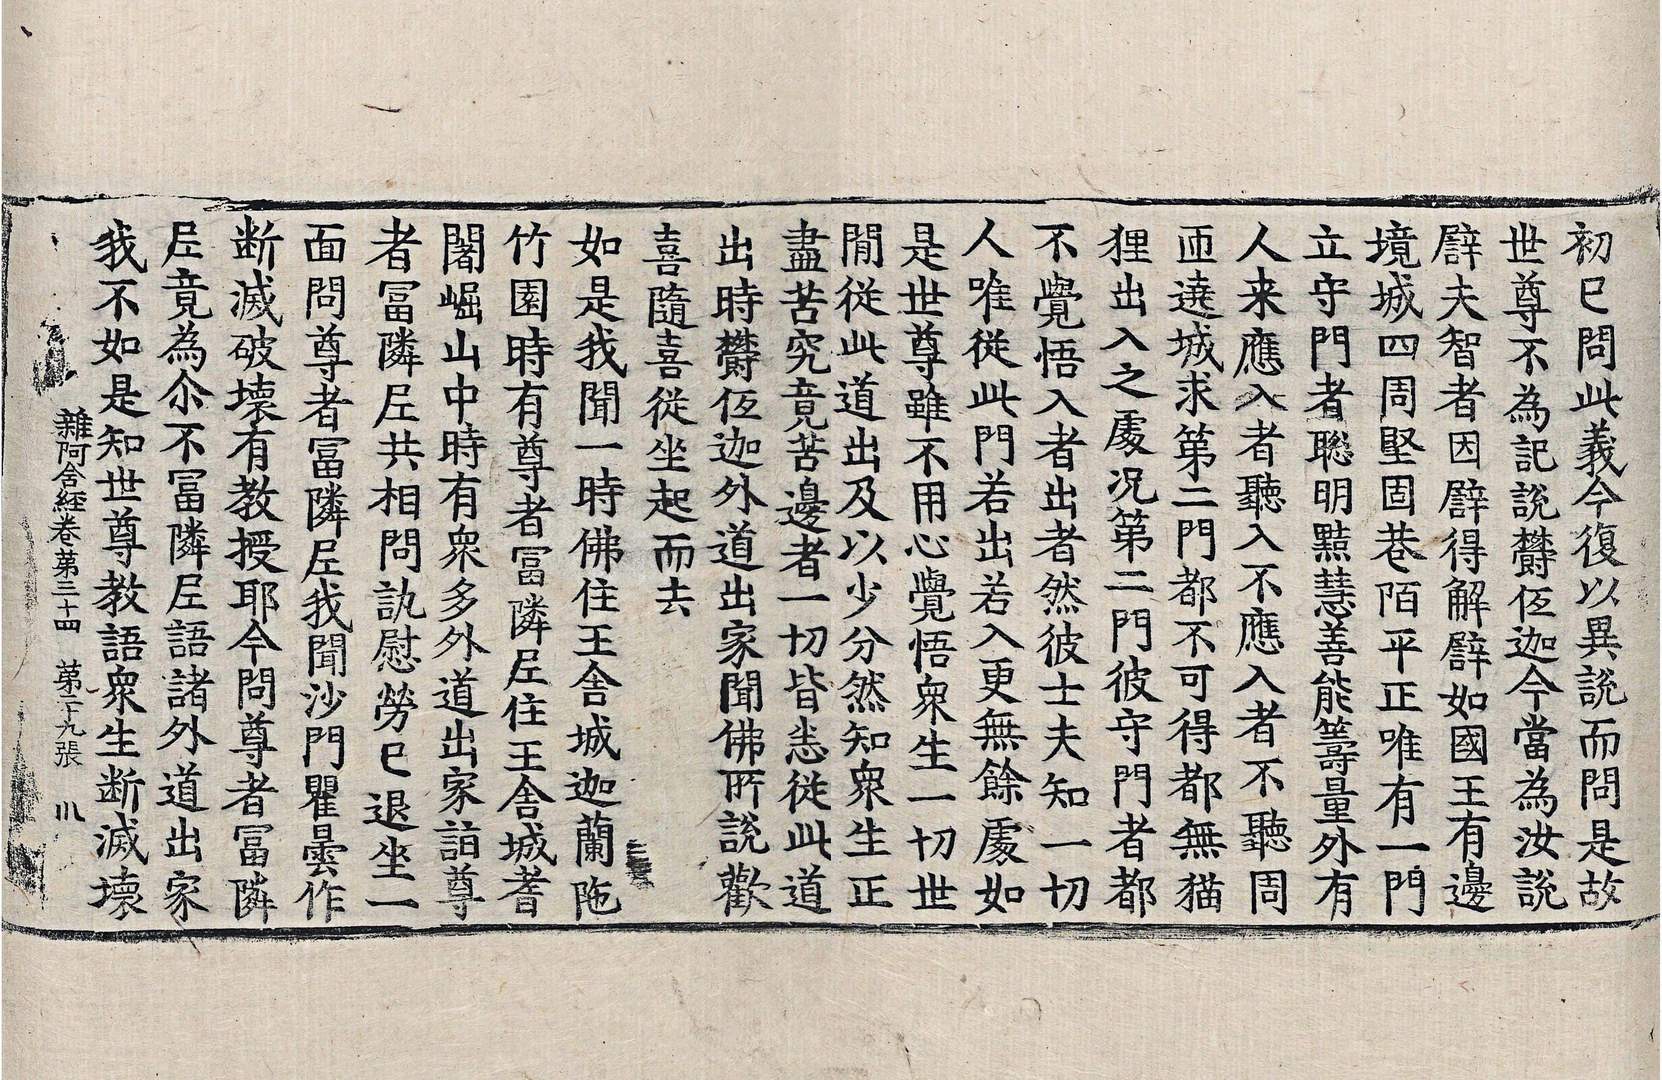 初已問此義今復以異說而問是故
世尊不為記說欝伍迦今當為汝說
譬夫智者因譬得解譬如國王有邊
境城四周堅固巷陌平正唯有一門
立守門者聡明黠慧善能籌量外有
人来應入者聽入不應入者不聽周
匝遶城求第二門都不可得都無猫
狸出入之處況第二門彼守門者都
不覺悟入者出者然彼士夫知一切
人唯從此門若出若入更無餘處如
是世尊雖不用心覺悟衆生一切世
間從此道出及以少分然知衆生正
盡苦究竟苦邊者一切皆悉從此道
出時欝伍迦外道出家聞佛所說歡
喜隨喜從坐起而去
如是我聞一時佛住王舍城迦蘭陁
竹園時有尊者冨隣𡰱住王舍城耆
闍崛山中時有衆多外道出家詣尊
者冨隣𡰱共相問訊慰勞已退坐一
面問尊者冨隣𡰱我聞沙門瞿曇作
断滅破壞有教授耶今問尊者冨隣
𡰱竟為尒不冨隣𡰱語諸外道出家
我不如是知世尊教語衆生断滅壞
雜阿含經卷第三十四 第二十九張 川